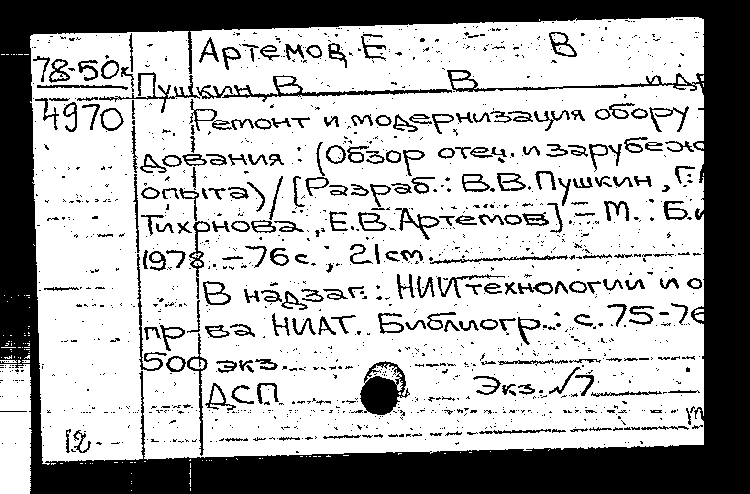 Артемов, Е. В
78-50к
Пушкин, В В и др
4970
Ремонт и модернизация обору-
дования : (Обзор отеч. и зарубеж
опыта) / [Разраб.: В.В.Пушкин, Г.
Тихонова, Е.В.Артемов]. – М. : Б.и
1978. – 76с. ; 21cm.
В надзаг.: НИИ технологии и о
пр-ва НИАТ. Библиогр.: с. 75-76
500 экз.
ДСП Экз. √7
12